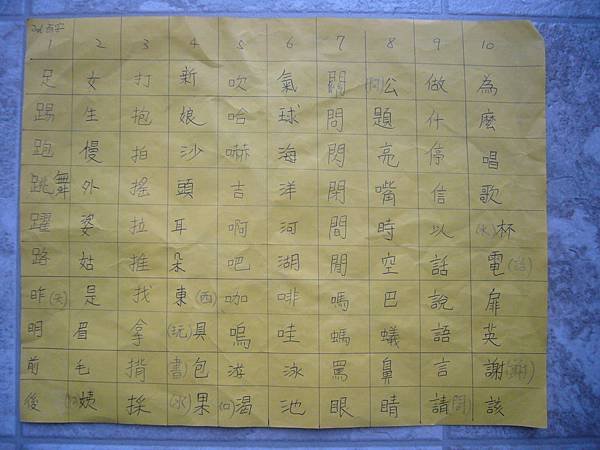 1 2 3 4 5 6 7 8 9 10
足 女 打 新 吹 氣 (阿)公 做 為
踢 生 抱 娘 哈 球 問 題 什 麼
跑 慢 拍 沙 嚇 海 閃 亮 停 唱
跳舞 外 搖 頭 吉 洋 閉 嘴 信 歌
躍 姿 拉 耳 啊 河 間 時 以 (水)杯
路 姑 推 朵 吧 湖 閒 空 話 電(話)
昨(天) 是 找 東(西) 咖 啡 嗎 巴 說 扉
明 眉 拿 (玩)具 嗚 哇 螞 蟻 語 英
前 毛 揹 (書)包 游 泳 罵 鼻 言 謝(謝)
後 (阿)姨 採 (水)果 (口)渴 池 眼 睛 請(問) 該